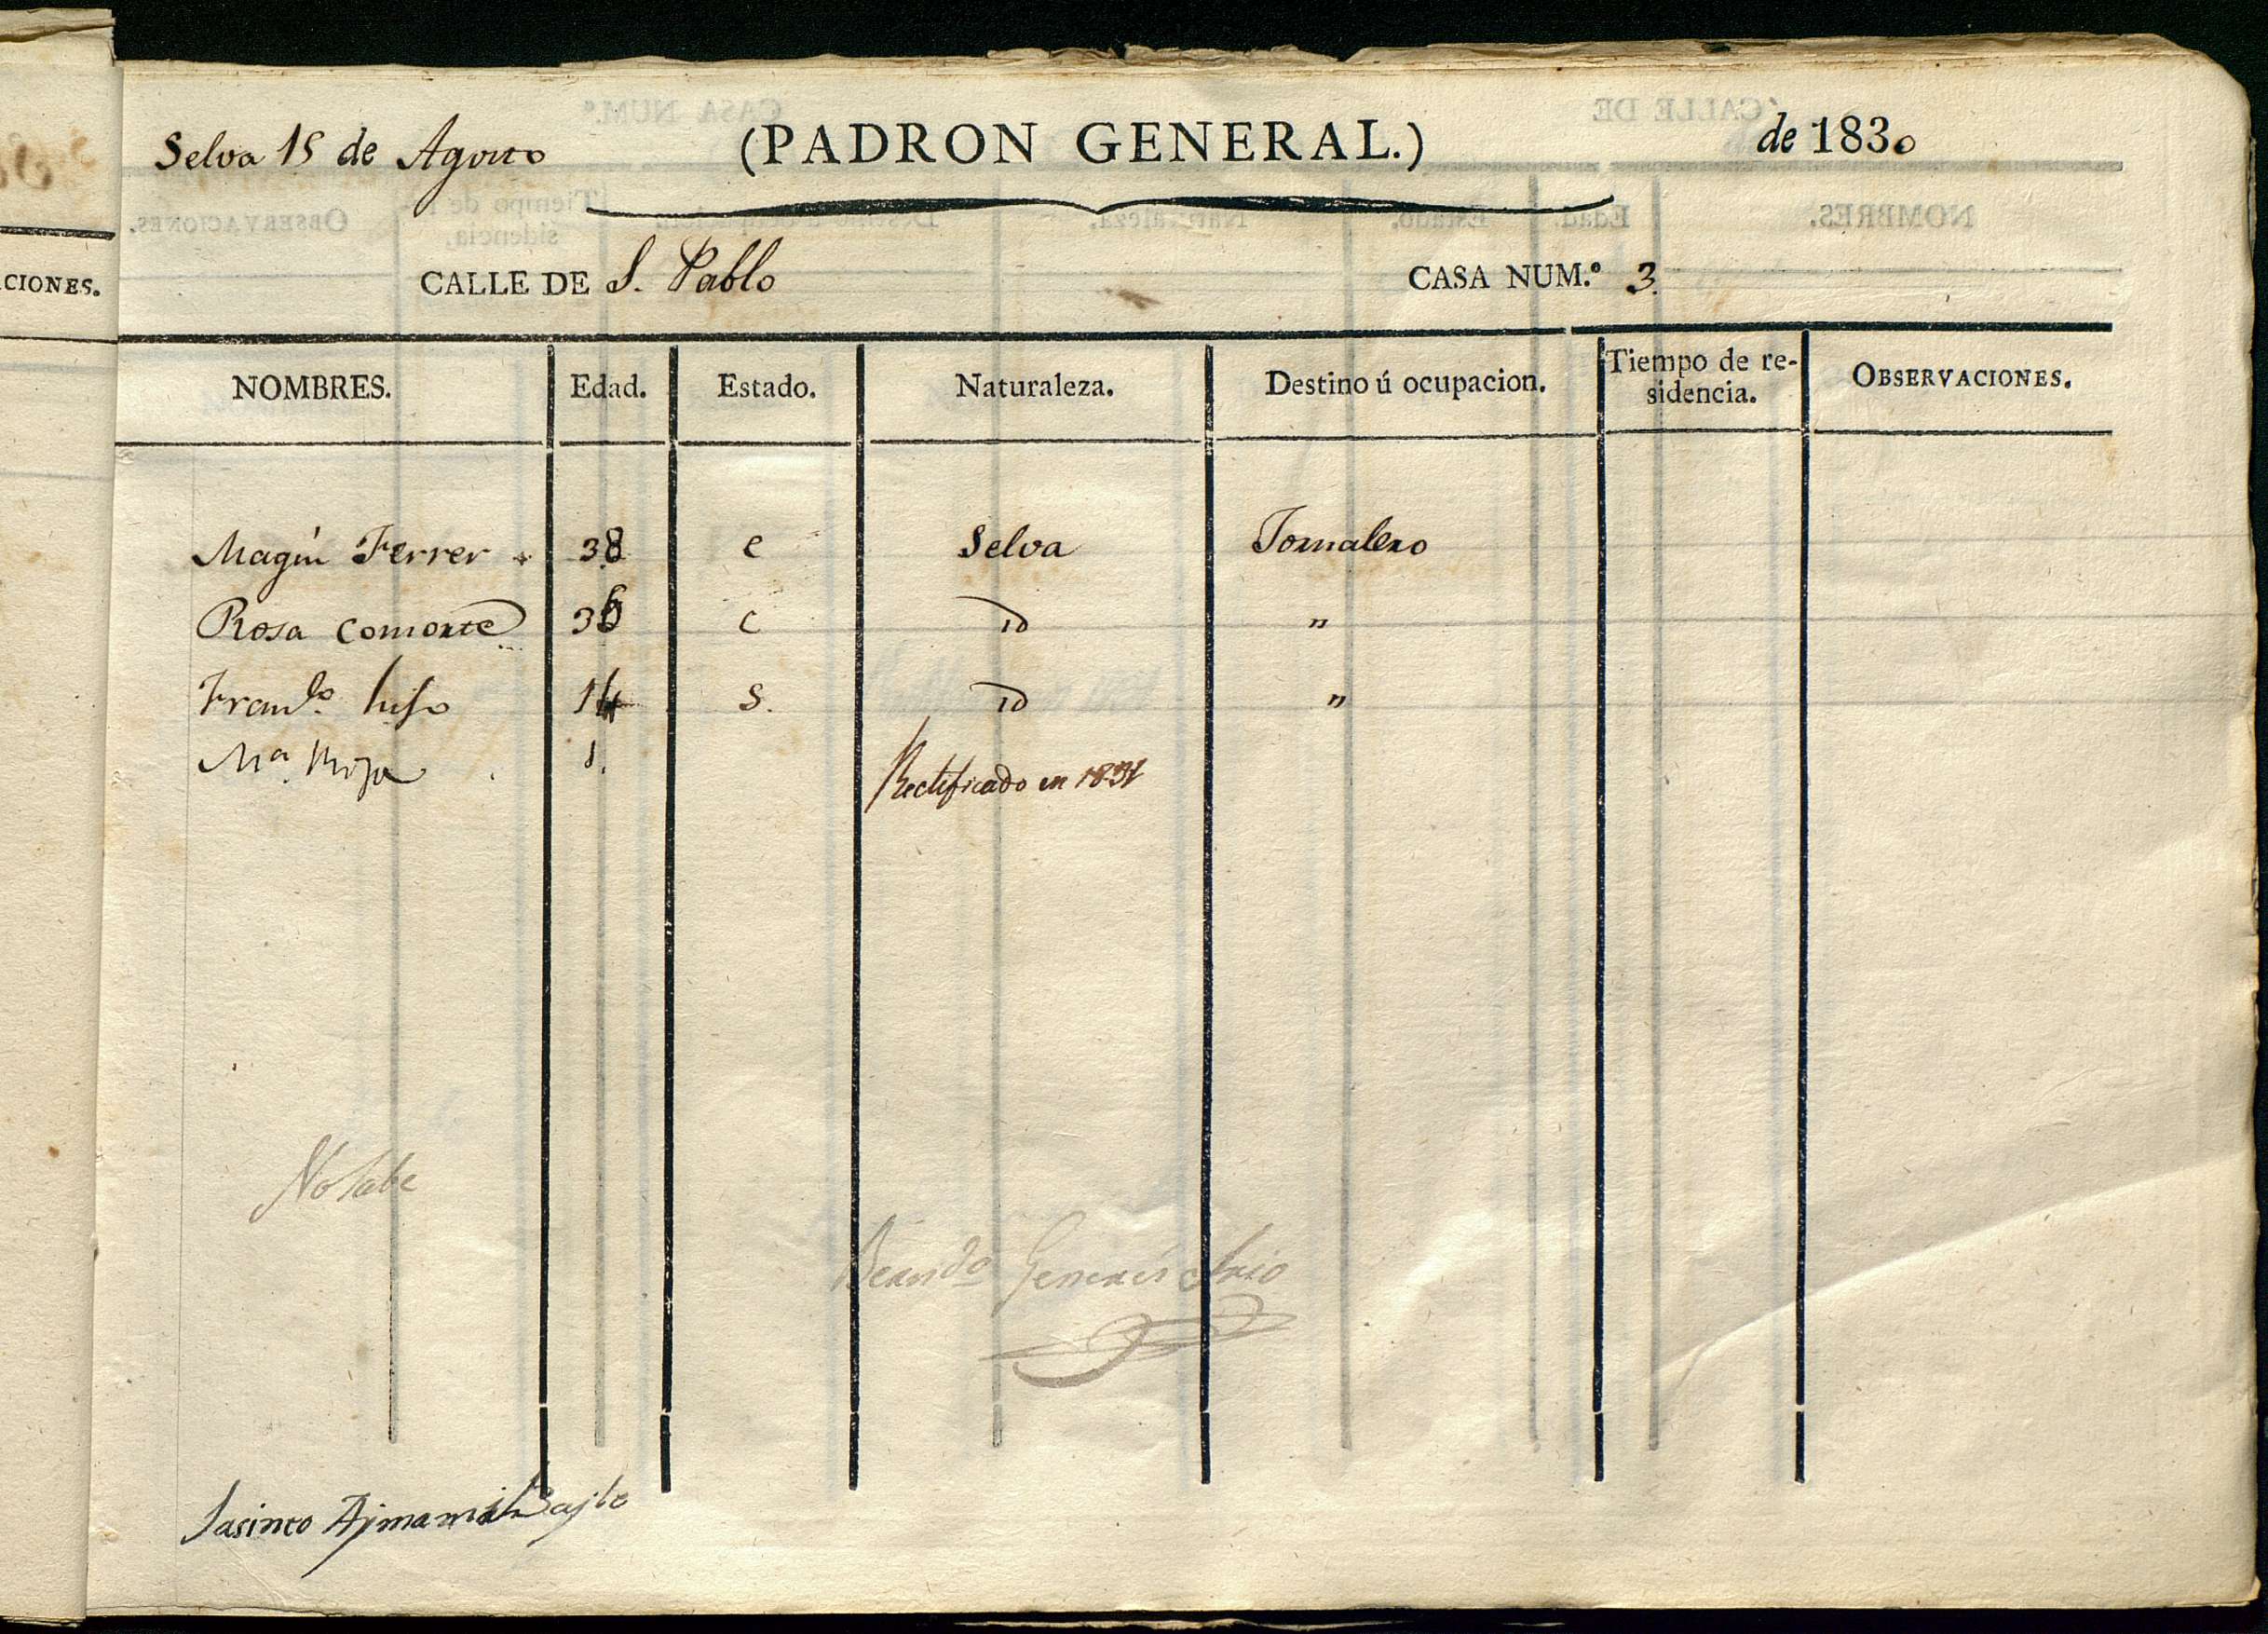 Selva 15 de Agosto (PADRON GENERAL.) de 1830
CALLE DE S. Pablo CASA NUM.º 3.
CIONES.
NOMBRES. Edad. Estado. Naturaleza. Destino ú ocupacion. Tiempo de re-
sidencia. OBSERVACIONES.
Magin Ferrer 38 c Selva Jornalero
Rosa consorte 36 c id "
Franco. hijo 14 s. id "
Ma. hija 1.
Rectificado en 1831
No sabe
Jasinto Bayle